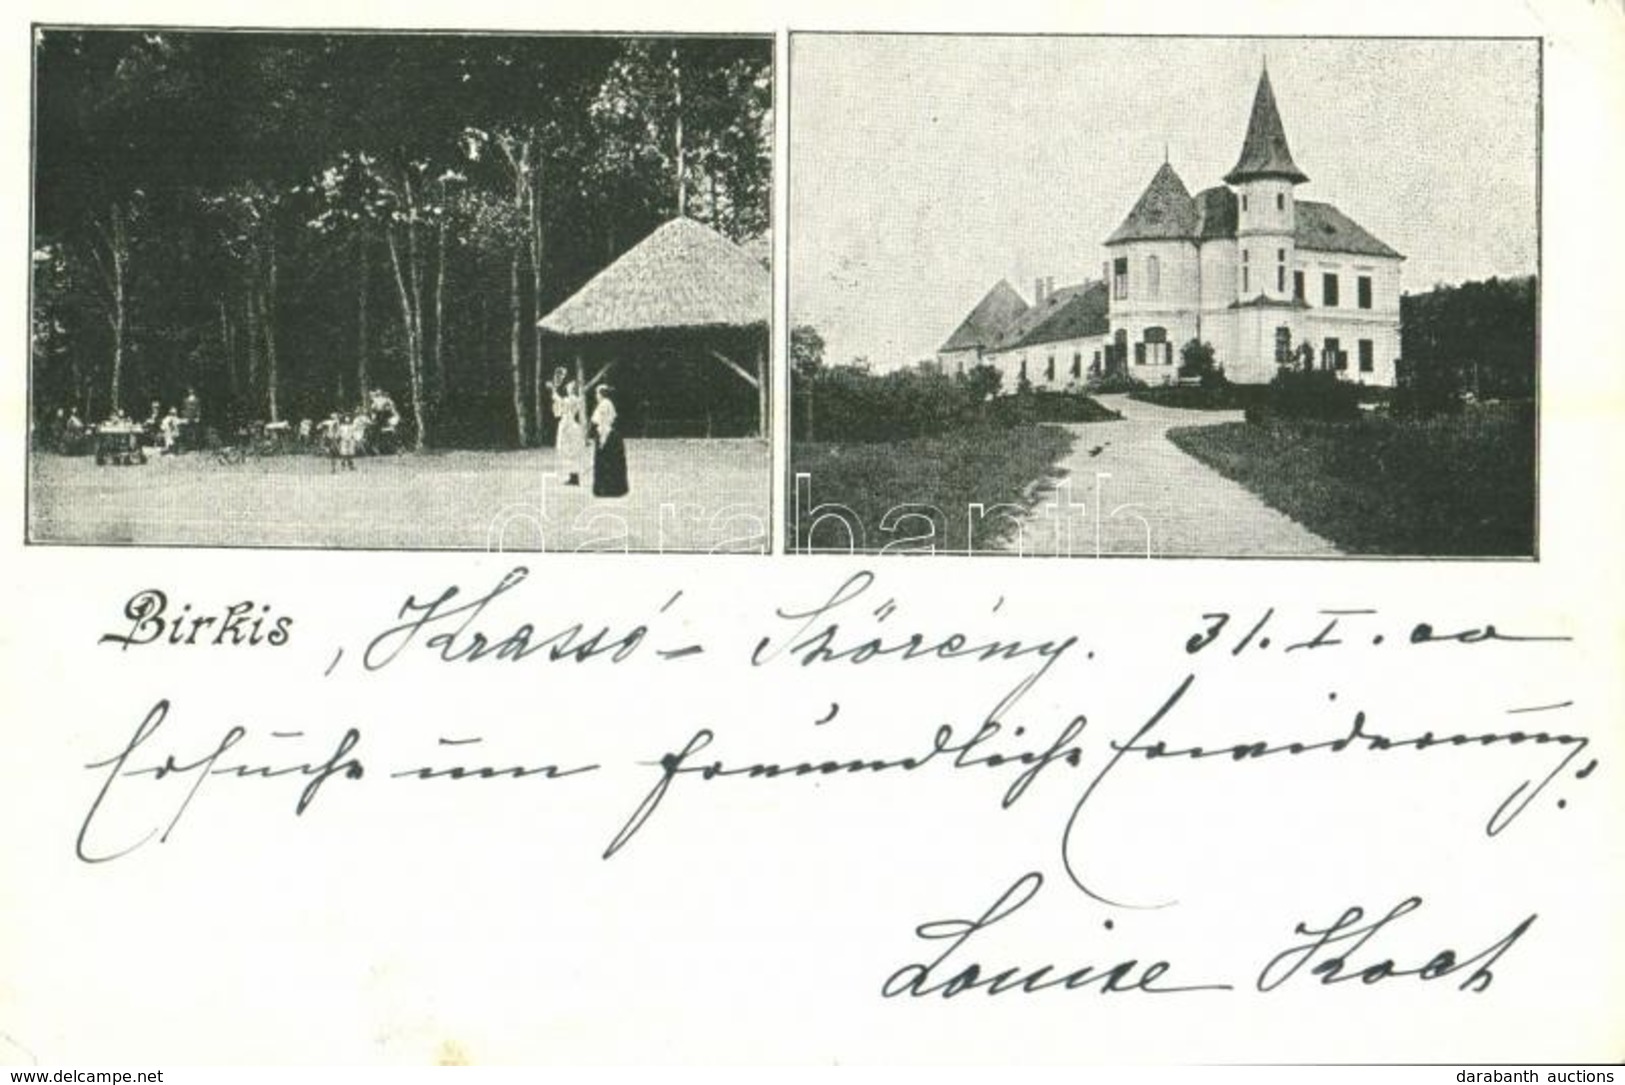 darabanth
Birkis, Krassó-Szörény. 31. I. 00
Ersuche um freundliche Erwiderung!
Louise Koch
www.delcampe.net
darabanth auctions